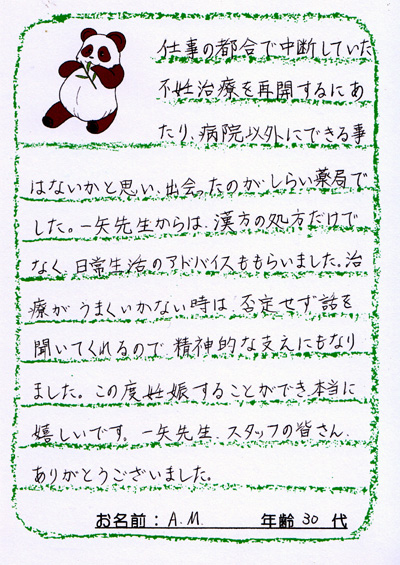 仕事の都合で中断していた
不妊治療を再開するにあ
たり、病院以外にできる事
はないかと思い、出会ったのがしらい薬局で
した。一矢先生からは、漢方の処方だけで
なく、日常生活のアドバイスももらいました。治
療がうまくいかない時は、否定せず話を
聞いてくれるので、精神的な支えにもなり
ました。この度妊娠することができ本当に
嬉しいです。一矢先生、スタッフの皆さん、
ありがとうございました。
お名前：A.M 年齢 30 代